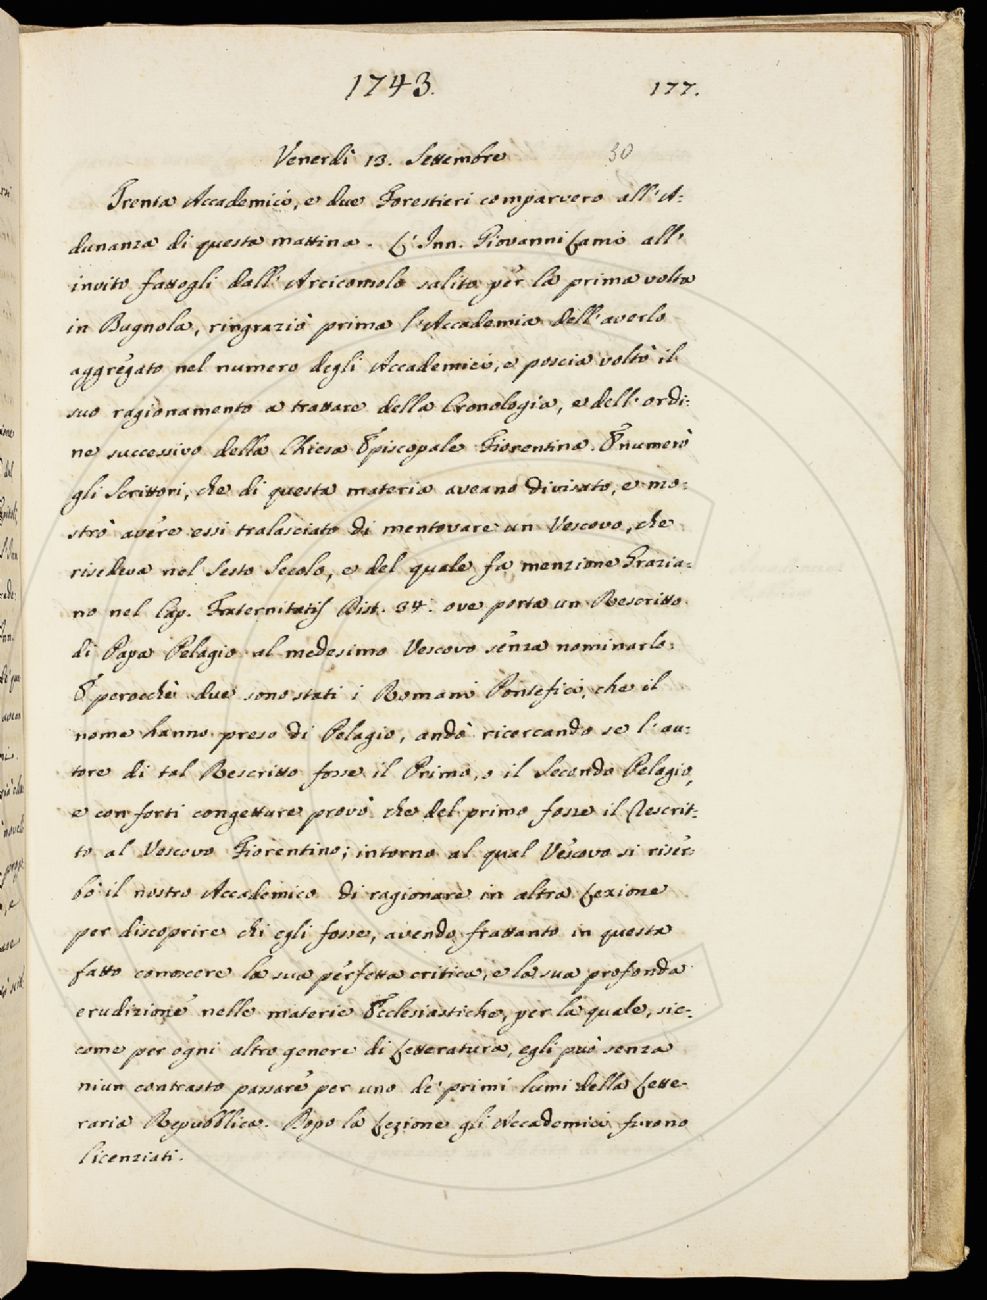 1743.
177.
Venerdì 13. Settembre
30
Trenta Accademici, e due Forestieri comparvero all'A-
dunanza di questa mattina. L'Inn. Giovanni Lami all'
invito fattogli dall'Arciconsolo salito per la prima volta
in Bugnola, ringraziò prima l'Accademia dell'averlo
aggregato nel numero degli Accademici, e poscia voltò il
suo ragionamento a trattare della Cronologia, e dell'ordi-
ne successivo della Chiesa Episcopale Fiorentina. Enumerò
gli Scrittori, che di questa materia aveano divisato, e mo-
strò avere essi tralasciato di mentovare un Vescovo, che
risedeva nel Sesto Secolo, e del quale fa menzione Grazia-
no nel Cap. Fraternitatis Dist. 34. ove porta un Rescritto
di Papa Pelagio al medesimo Vescovo senza nominarlo.
E perocchè due sono stati i Romani Pontefici, che il
nome hanno preso di Pelagio, andò ricercando se l'au-
tore di tal Rescritto fosse il Primo, o il Secondo Pelagio,
e con forti congetture provò che del primo fosse il Rescrit-
to al Vescovo Fiorentino; intorno al qual Vescovo si riser-
bò il nostro Accademico di ragionare in altra Lezione
per discoprire chi egli fosse, avendo frattanto in questa
fatto conoscere la sua perfetta critica, e la sua profonda
erudizione nelle materie Ecclesiastiche, per la quale, sic-
come per ogni altro genere di Letteratura, egli può senza
niun contrasto passare per uno de' primi lumi della Lette-
raria Repubblica. Dopo la Lezione gli Accademici furono
licenziati.